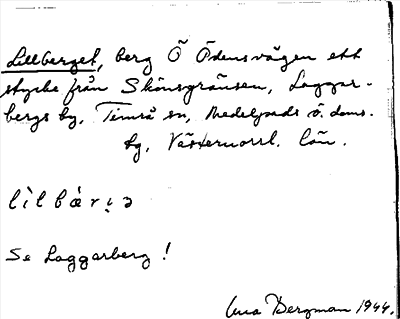 Lillberget, berg Ö Ödensvägen ett
stycke från Skönsgränsen, Laggar-
bergs by, Timrå sn, Medelpads ö. doms.
bg, Västernorrl. län.
lìlbàrįə
Se Laggarberg!
Bergman 1944.